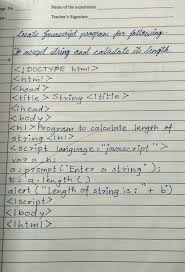 Name of the experiment
Teacher's Signature
Create Javascript program for following:
accept string and calculate its length
<!DOCTYPE html>
<html>
<head>
<title> String </title>
</head>
<body>
<h1> Program to calculate length of
string </h1>
<script language = "javascript">
var a, b;
a = prompt ("Enter a string");
b = a.length ()
alert ("length of string is : " + b)
</script>
</body>
</html>